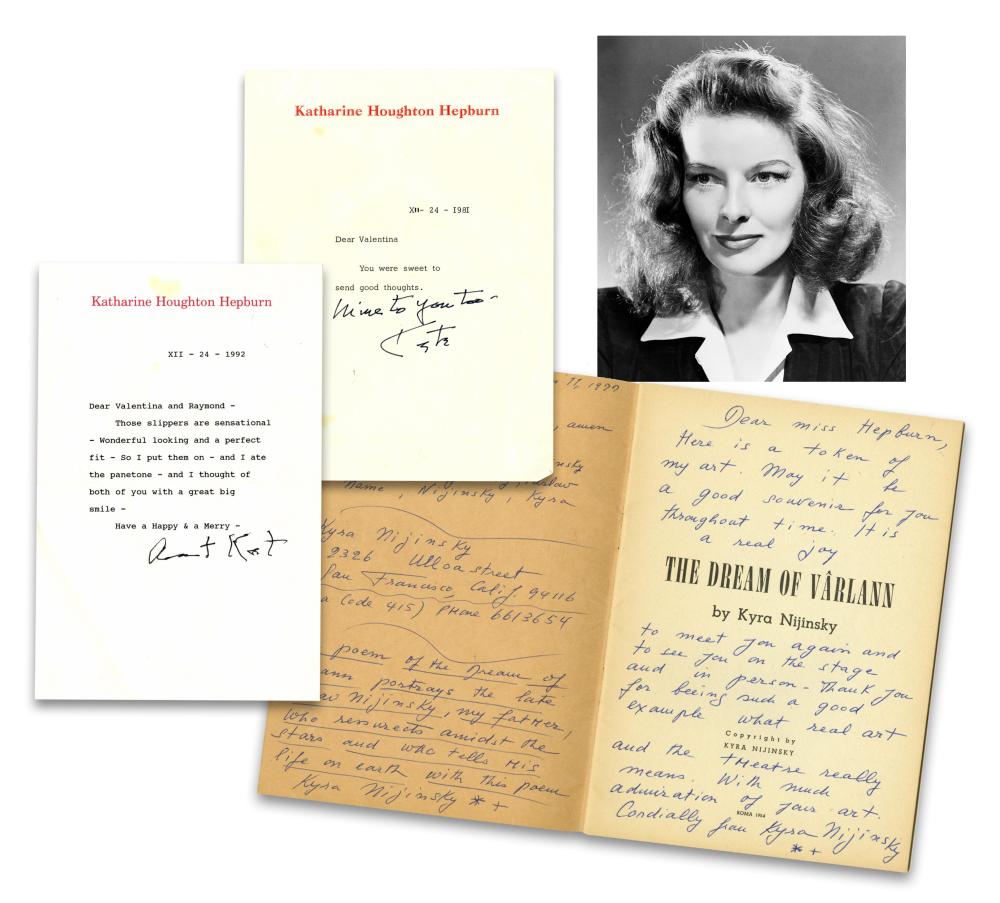 Katharine Houghton Hepburn
XII - 24 - 1981
Dear Valentina
You were sweet to
send good thoughts.
Mine to you too -
Kate
Katharine Houghton Hepburn
XII - 24 - 1992
Dear Valentina and Raymond -
Those slippers are sensational
- Wonderful looking and a perfect
fit - So I put them on - and I ate
the panetone - and I thought of
both of you with a great big
smile -
Have a Happy & a Merry -
Aunt Kat
amen
name, Nijinsky, Kyra
Kyra Nijinsky
2326 Ulloa street
San Francisco, Calif. 94116
a Code 415) PHone 6613654
poem of the Dream of
ann portrays the late
Nijinsky, my fatHer,
who ressurects amidst the
stars and who tells His
life on earth with this poem
Kyra Nijinsky * +
Dear miss Hepburn,
Here is a token of
my art. May it be
a good souvenir for you
throughout time. It is
a real joy
THE DREAM OF VÂRLANN
by Kyra Nijinsky
to meet you again and
to see you on the stage
and in person - Thank you
for beeing such a good
example what real art
Copyright by
KYRA NIJINSKY
and the tHeatre really
means. With much
admiration of your art.
ROMA 1964
Cordially frau Kyra Nijinsky
* +